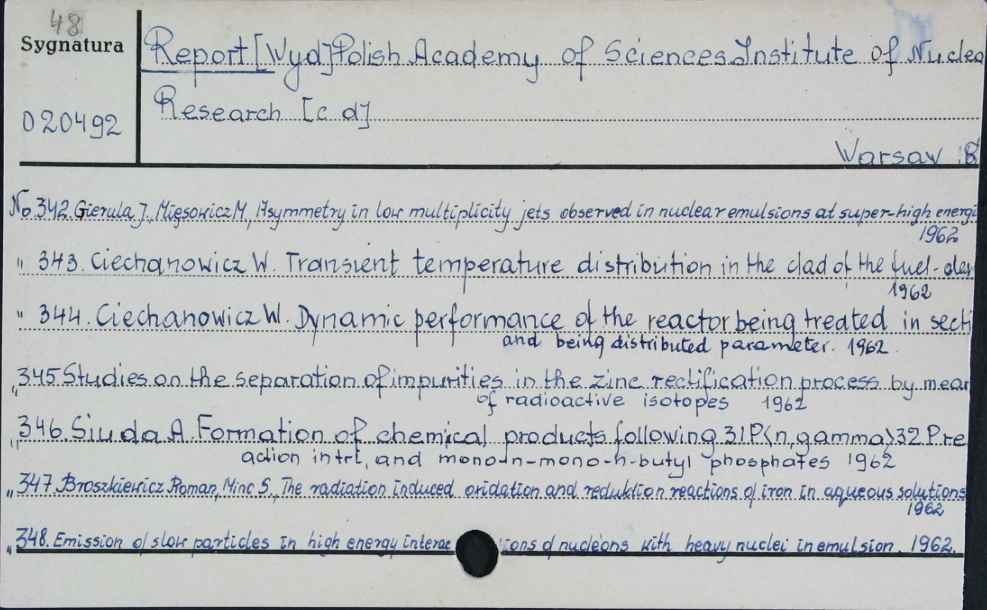 48
Sygnatura
020492
Report [Wyd] Polish Academy of Sciences Institute of Nuclea
Research [c d]
Warsaw 8
No 342 Gierula J., Mięsowicz M, Asymmetry in low multiplicity jets observed in nuclear emulsions at super-high energi
1962
" 343. Ciechanowicz W. Transient temperature distribution in the clad of the fuel-
1962
" 344. Ciechanowicz W. Dynamic performance of the reactor being treated in secti
and being distributed parameter. 1962
" 345 Studies on the separation of impurities in the zinc rectification process by mean
of radioactive isotopes 1962
" 346. Siuda A. Formation of chemical products following 31P<n, gamma>32P re
action in tri, and mono-n-mono-n-butyl phosphates 1962
" 347. Broszkiewicz Roman, Minc S., The radiation induced oxidation and reduktion reactions of iron in aqueous solutions
1962
" 348. Emission of slow particles in high energy interac ions of nucleons with heavy nuclei in emulsion. 1962.